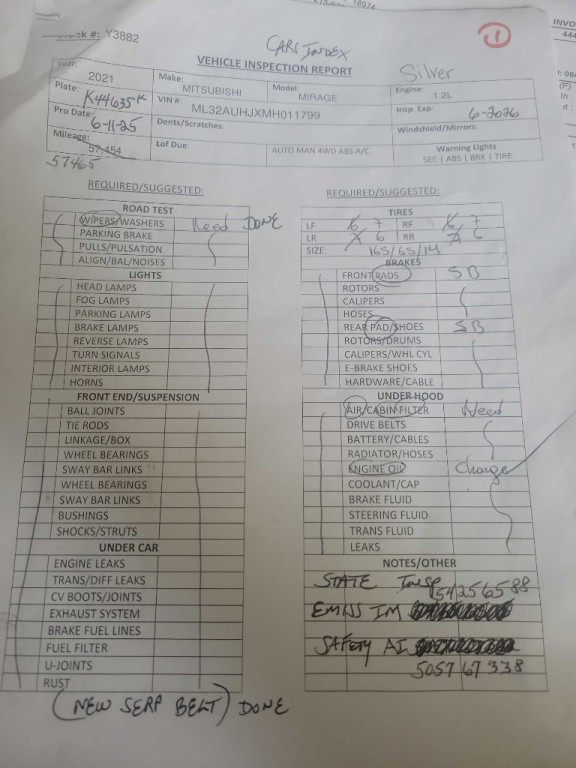 #: Y3882
CARS INDEX
1
INVO
444
VEHICLE INSPECTION REPORT
Silver
Year:
2021
Make:
MITSUBISHI
Model:
MIRAGE
Engine:
1.2L
Plate:
K44635K
VIN #:
ML32AUHJXMH011799
Insp. Exp:
6-2026
Pro Date:
6-11-25
Dents/Scratches:
Windshield/Mirrors:
Mileage:
57,454
57465
Lof Due:
AUTO MAN 4WD ABS A/C
Warning Lights
SEC | ABS | BRK | TIRE
REQUIRED/SUGGESTED:
ROAD TEST
WIPERS/WASHERS Need DONE
PARKING BRAKE
PULLS/PULSATION
ALIGN/BAL/NOISES
LIGHTS
HEAD LAMPS
FOG LAMPS
PARKING LAMPS
BRAKE LAMPS
REVERSE LAMPS
TURN SIGNALS
INTERIOR LAMPS
HORNS
FRONT END/SUSPENSION
BALL JOINTS
TIE RODS
LINKAGE/BOX
WHEEL BEARINGS
SWAY BAR LINKS
WHEEL BEARINGS
SWAY BAR LINKS
BUSHINGS
SHOCKS/STRUTS
UNDER CAR
ENGINE LEAKS
TRANS/DIFF LEAKS
CV BOOTS/JOINTS
EXHAUST SYSTEM
BRAKE FUEL LINES
FUEL FILTER
U-JOINTS
RUST
(NEW SERP BELT) DONE
REQUIRED/SUGGESTED:
TIRES
LF 7 RF 7
LR 6 RR 6
SIZE: 165/65/14
BRAKES
FRONT PADS 5B
ROTORS
CALIPERS
HOSES
REAR PAD/SHOES 5B
ROTORS/DRUMS
CALIPERS/WHL CYL
E-BRAKE SHOES
HARDWARE/CABLE
UNDER HOOD
AIR/CABIN FILTER Need
DRIVE BELTS
BATTERY/CABLES
RADIATOR/HOSES
ENGINE OIL Change
COOLANT/CAP
BRAKE FLUID
STEERING FLUID
TRANS FLUID
LEAKS
NOTES/OTHER
STATE Insp
EMISS IM 154256588
SAFETY AI
505767338